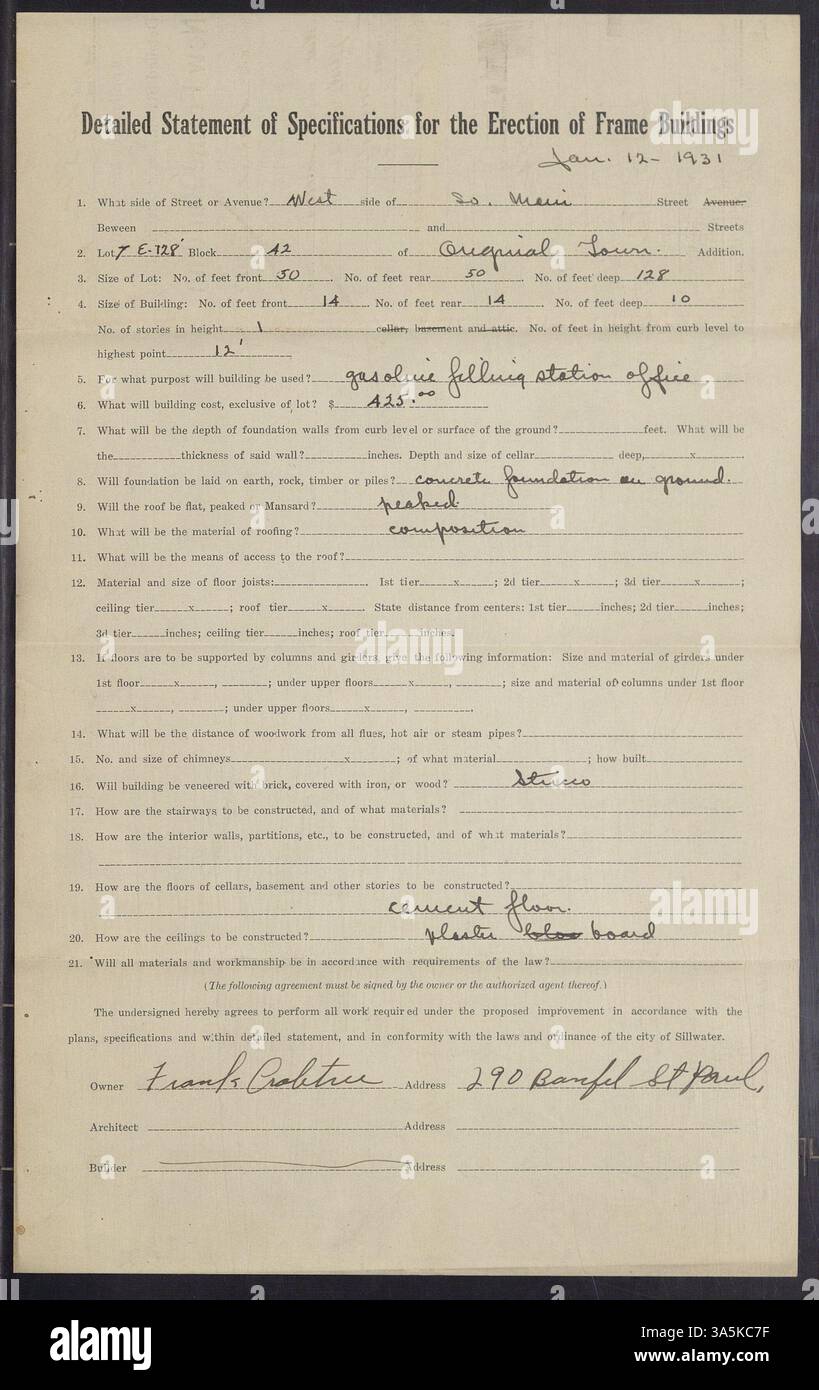 Detailed Statement of Specifications for the Erection of Frame Buildings
Jan. 12 - 1931
1. What side of Street or Avenue? West side of So. Main Street Avenue.
Beween and Streets
2. Lot 7 E-128' Block 42 of Original Town. Addition.
3. Size of Lot: No. of feet front 50. No. of feet rear 50. No. of feet deep 128
4. Size of Building: No. of feet front 14. No. of feet rear 14 No. of feet deep 10
No. of stories in height 1 cellar, basement and attic. No. of feet in height from curb level to
highest point 12'
5. For what purpost will building be used? gasoline filling station office
6. What will building cost, exclusive of lot? $ 425.00
7. What will be the depth of foundation walls from curb level or surface of the ground? feet. What will be
the thickness of said wall? inches. Depth and size of cellar deep, x .
8. Will foundation be laid on earth, rock, timber or piles? concrete foundation on ground.
9. Will the roof be flat, peaked or Mansard? peaked.
10. What will be the material of roofing? composition
11. What will be the means of access to the roof?
12. Material and size of floor joists: . 1st tier x ; 2d tier x ; 3d tier x ;
ceiling tier x ; roof tier x . State distance from centers: 1st tier inches; 2d tier inches;
3d tier inches; ceiling tier inches; roof tier inches.
13. If floors are to be supported by columns and girders, give the following information: Size and material of girders under
1st floor x , ; under upper floors x , ; size and material of columns under 1st floor
x , ; under upper floors x , .
14. What will be the distance of woodwork from all flues, hot air or steam pipes?
15. No. and size of chimneys x ; of what material ; how built
16. Will building be veneered with brick, covered with iron, or wood? Stucco
17. How are the stairways to be constructed, and of what materials?
18. How are the interior walls, partitions, etc., to be constructed, and of what materials?
19. How are the floors of cellars, basement and other stories to be constructed?
cement floor.
20. How are the ceilings to be constructed? plaster board
21. Will all materials and workmanship be in accordance with requirements of the law?
(The following agreement must be signed by the owner or the authorized agent thereof.)
The undersigned hereby agrees to perform all work required under the proposed improvement in accordance with the
plans, specifications and within detailed statement, and in conformity with the laws and ordinance of the city of Sillwater.
Owner Frank Crabtree Address 290 Banfil St Paul,
Architect Address
Builder Address
alamy
alamy
alamy
a
alamy
Image ID: 3A5KC7F
www.alamy.com